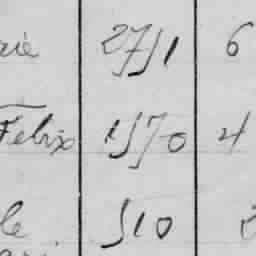 rie 2751 6
Felix 1570 4
le 510